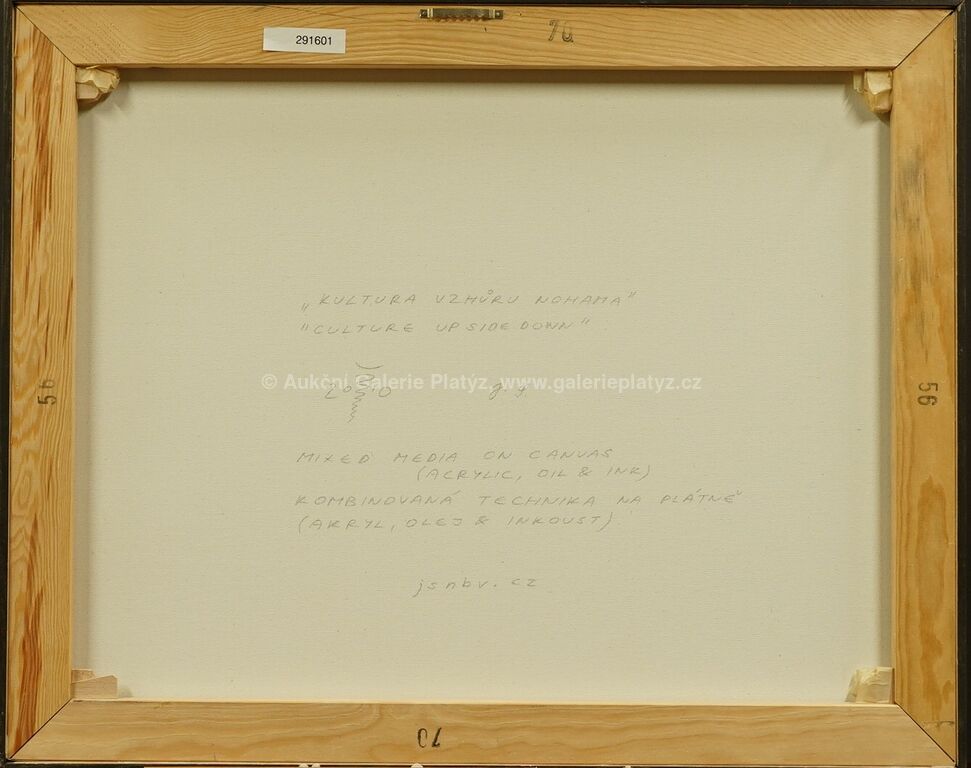 291601
70
„KULTURA VZHŮRU NOHAMA"
"CULTURE UPSIDE DOWN"
© Aukční Galerie Platýz, www.galerieplatyz.cz
56
56
MIXED MEDIA ON CANVAS
(ACRYLIC, OIL & INK)
KOMBINOVANÁ TECHNIKA NA PLÁTNĚ
(AKRYL, OLEJ & INKOUST)
jsnbv.cz
70